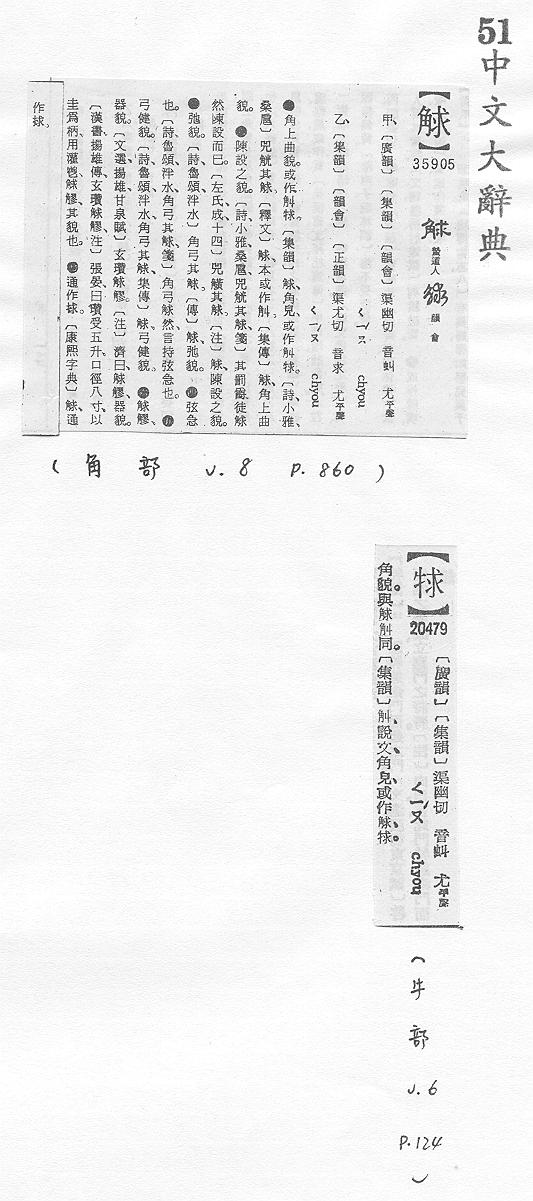 51中文大辭典
【觩】
35905
觩 營道人 韻會
甲、〔廣韻〕〔集韻〕〔韻會〕渠幽切 音虯 尤平聲
ㄑㄧㄡˊ chyou
乙、〔集韻〕〔韻會〕〔正韻〕渠尤切 音求 尤平聲
ㄑㄧㄡˊ chyou
角上曲貌。或作觓𤙥。〔集韻〕觩、角皃、或作觓𤙥。〔詩小雅、
桑扈〕兕觥其觩。〔釋文〕觩、本或作觓。〔集傳〕觩、角上曲
貌。陳設之貌。〔詩小雅、桑扈、兕觥其觩、箋〕其罰爵徒觩
然陳設而已。〔左氏、成十四〕兕觥其觩。〔注〕觩、陳設之貌。
弛貌。〔詩、魯頌、泮水〕角弓其觩。〔傳〕觩、弛貌。弦急
也。〔詩、魯頌、泮水、角弓其觩、箋〕角弓觩然、言持弦急也。
弓健貌。〔詩、魯頌、泮水、角弓其觩、集傳〕觩、弓健貌。觩䚧、
器貌。〔文選、揚雄、甘泉賦〕玄瓚觩䚧。〔注〕濟曰、觩䚧、器貌。
〔漢書、揚雄傳、玄瓚觩䚧、注〕張晏曰、瓚受五升、口徑八寸、以
圭爲柄、用灌鬯、觩䚧、其貌也。通作捄。〔康熙字典〕觩、通
作捄。
(角部 v.8 P.860)
【𤙥】
20479
〔廣韻〕〔集韻〕渠幽切 音虯 尤平聲
ㄑㄧㄡˊ chyou
角貌。與觩觓同。〔集韻〕觓、說文、角皃、或作觩𤙥。
(牛部 v.6 P.124)